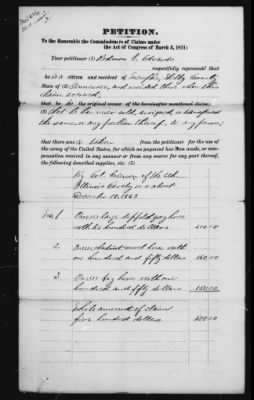 PETITION.
To the Honorable the Commissioners of Claims under
the Act of Congress of March 3, 1871:
Your petitioner (1)
respectfully represent that
he is a citizen and resident of Memphis, Shelby County
State of (2) Tennessee, and resided there when this
claim accrued,
that he is the original owner of the hereinafter mentioned claim;
that he has never sold, assigned, or transferred
the same or any portion thereof, to any person;
that there was taken from the petitioner for the use of
the army of the United States, for which no payment has been made, or com-
pensation received in any manner or from any source for any part thereof,
the following described supplies, viz: (5)
By Col. of the 6th
Illinois Cavalry in or about
December 10, 1863
No. 1 One large bay horse
worth two hundred dollars 200.00
2 One horse worth
one hundred and fifty dollars 150.00
3 One bay horse worth one
hundred and fifty dollars 150.00
Whole amount of claim
five hundred dollars 500.00